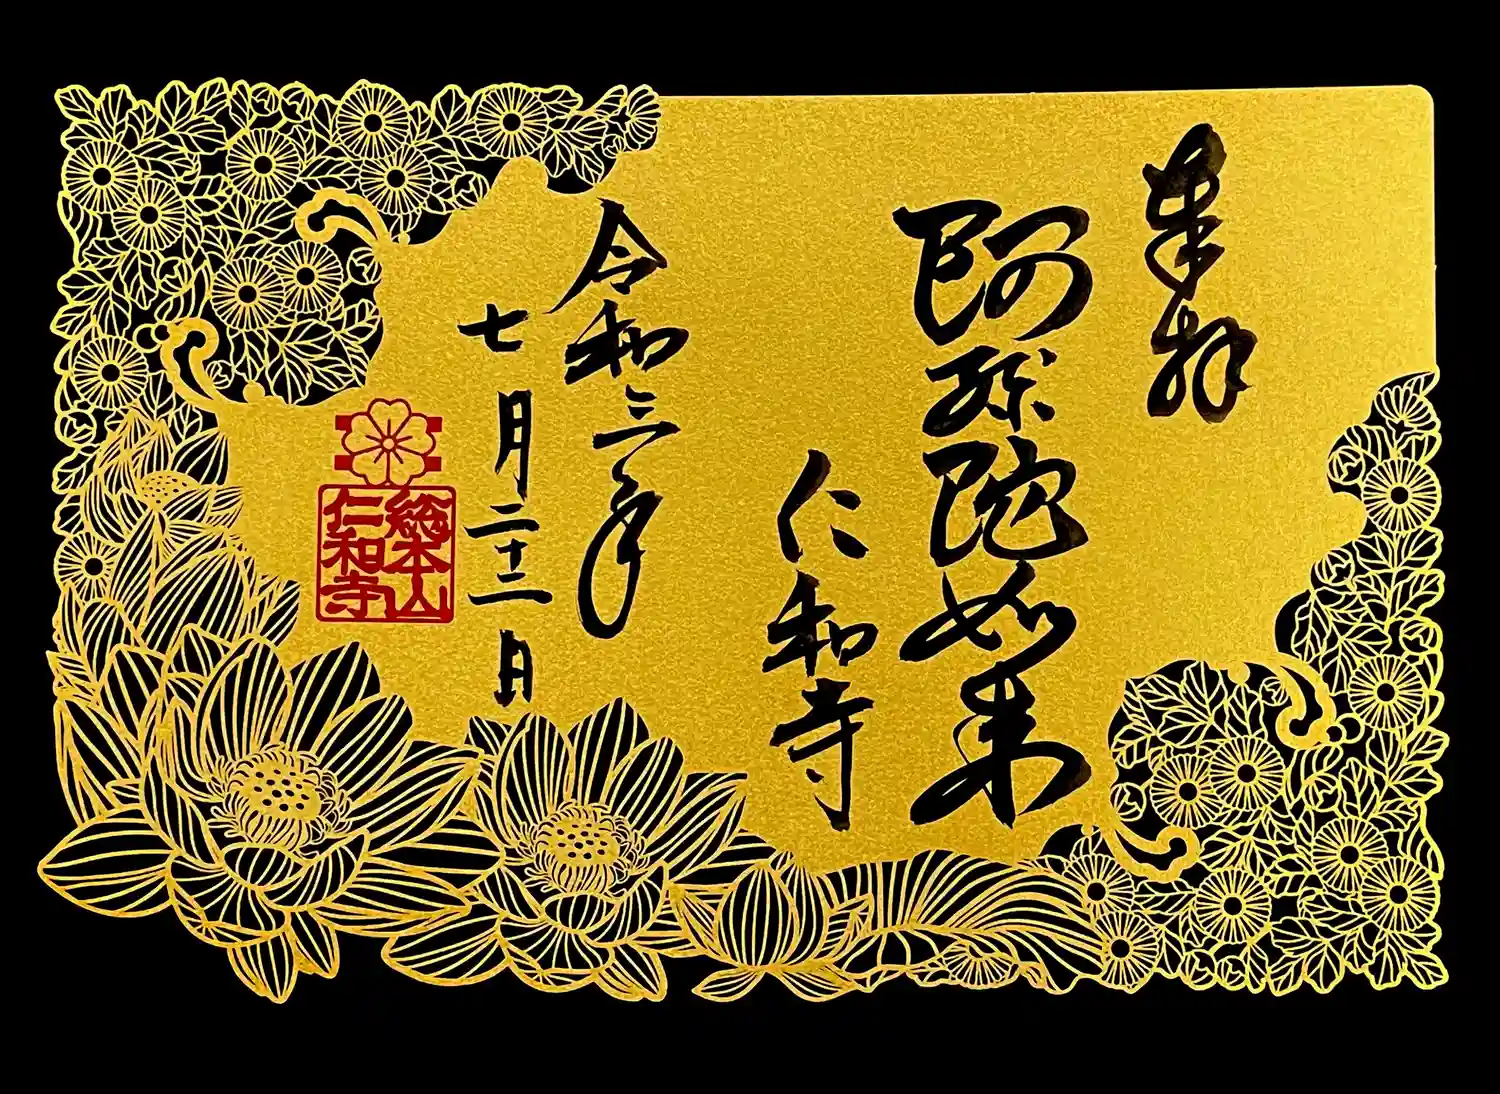 奉拝
阿弥陀如来
仁和寺
令和三年
七月二十二日
総本山
仁和寺